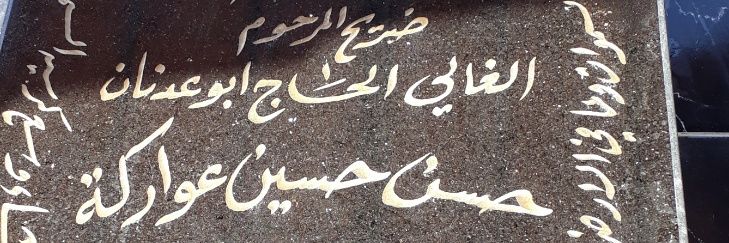 ضريح المرحوم
الغالي الحاج ابو عدنان
حسن حسين عواركة
وما في الارض